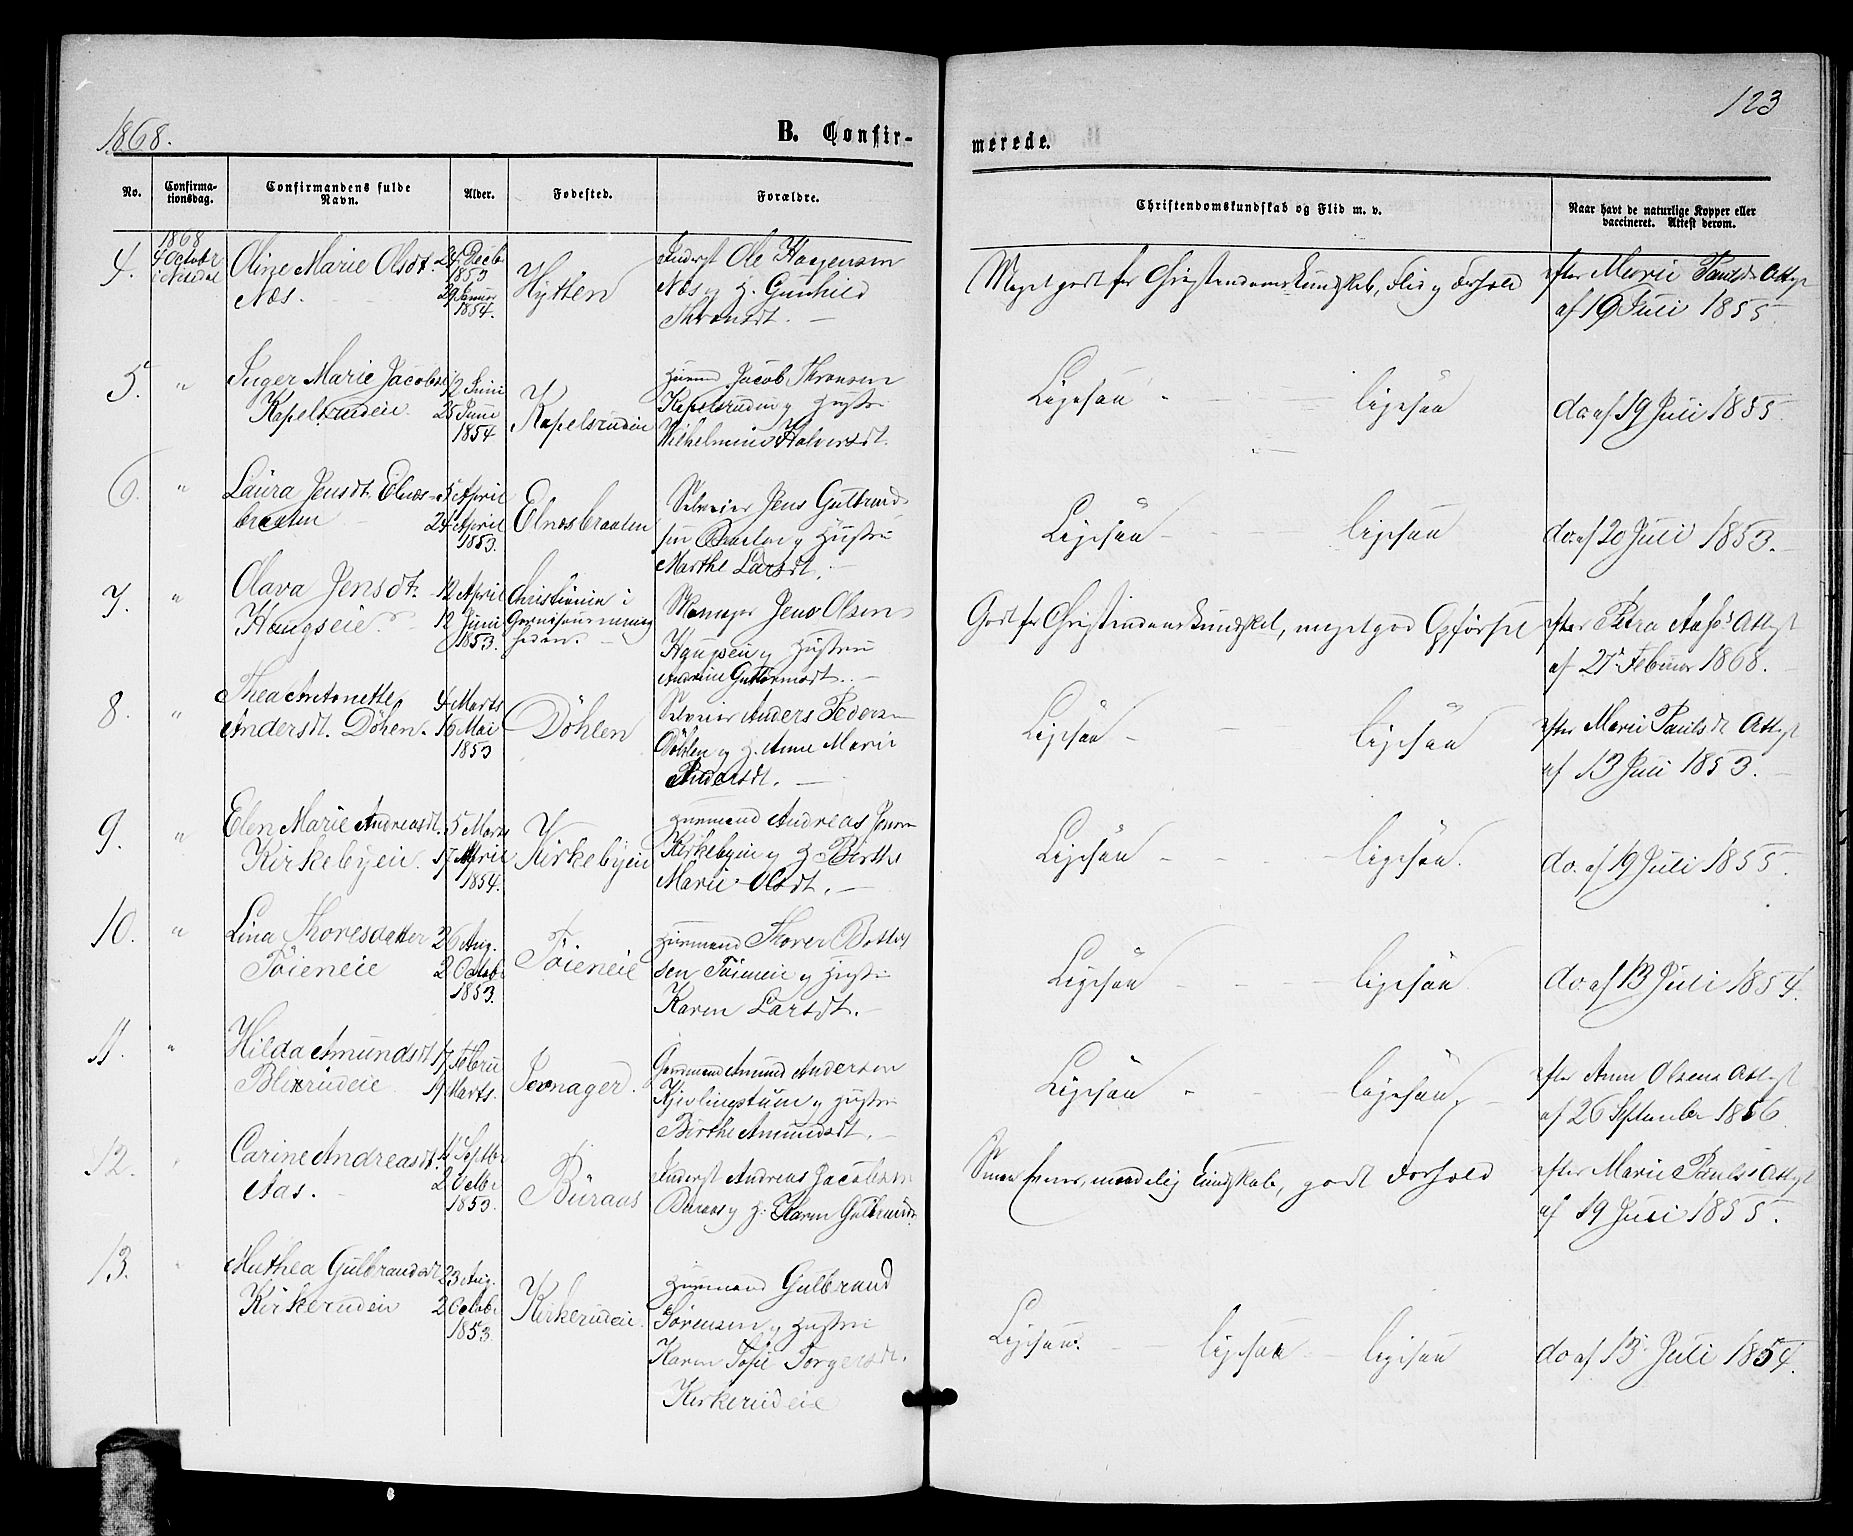 1868.
B. Confir-
merede.
123
No.
Confirma-
tionsdag.
Confirmandens fulde
Navn.
Alder.
Fødested.
Forældre.
Christendomskundskab og Flid m. v.
Naar havt de naturlige Kopper eller
vaccineret. Attest derom.
4.
1868
4 Octobr
i Nitedal
Oline Marie Olsdt.
Næs.
24 Decb.
1853
29 Januar
1854.
Hytten
Inderst Ole Haagensen
Næs og H. Gunhild
Thronsdt. —
Meget godt for Christendomskundskab, Flid og Forhold
efter Marie Paulsd. Attest
af 19 Juli 1855.
5. "
Inger Marie Jacobsd
Kapelsrudeie.
12 Juni
25 Juni
1854
Kapelsrudeie
Huusmd Jacob Thronsen
Kapelsrudeie og Hustru
Wilhelmine Halvorsdt.
Ligesaa - - - ligesaa
do. af 19 Juli 1855.
6. "
Laura Jensdt. Elnes-
braaten
5 April
24 April
1853.
Elnesbraaten
Selveier Jens Gulbrand-
sen Braaten og Hustru
Marthe Larsdt. —
Ligesaa - - - ligesaa
do. af 20 Juli 1853. —
7. "
Olava Jensdt.
Haugseie.
12 April
12 Juni
1853.
Christiania i
heden.
Skomager Jens Olsen
Haugseie og Hustru
Andrine Guttormsdt. —
Godt for Christendomskundskab, meget god Opførsel
efter Petra Aas's Attest
af 27 Februar 1868. —
8. "
Thea Antonette
Andersdt. Döhlen.
4 Marts
16 Mai
1853
Döhlen
Selveier Anders Pedersen
Döhlen og H. Anne Marie
Andersdt. —
Ligesaa - - - ligesaa
efter Marie Paulsdt Attest
af 13 Juli 1853. —
9. "
Elen Marie Andreasdt.
Kirkebyeie.
5 Marts
17 April
1854.
Kirkebyeie
Huusmand Andreas Jensen
Kirkebyeie og H. Birthe
Marie Olsdt. —
Ligesaa - - - ligesaa.
do. af 19 Juli 1855.
10. "
Lina Thoresdatter
Töieneie
26 Aug.
2 Octobr
1853.
Töieneie
Huusmand Thorer Bottolf
sen Töieneie og Hustru
Karen Larsdt. —
Ligesaa - - - ligesaa
do. af 13 Juli 1854.
11. "
Hilda Amundsdt.
Blixrudeie
17 Febru
19 Marts.
Jevnager.
Gaardmand Amund Anderson
Kjevlingstuen og Hustru
Birthe Amundsdt. —
Ligesaa - - - ligesaa. —
efter Anne Olsens Attest
af 26 September 1856
12. "
Carine Andreasdt.
Aas. —
11 Septbr
2 Octbr
1853.
Büraas
Inderst Andreas Jacobsen
Buraas og H. Karen Gulbrandsd.
Smaa Evner, maadelig Kundskab, godt Forhold
efter Marie Paulsd. Attest
af 19 Juli 1855.
13. "
Mathea Gulbrandsdt
Kirkerudeie
23 Aug.
2 Octobr
1853.
Kirkerudeie
Huusmand Gulbrand
Sörensen og Hustru
Karen Sofie Torgersdt.
Kirkerudeie
Ligesaa. - - ligesaa - ligesaa
do af 13 Juli 1854.